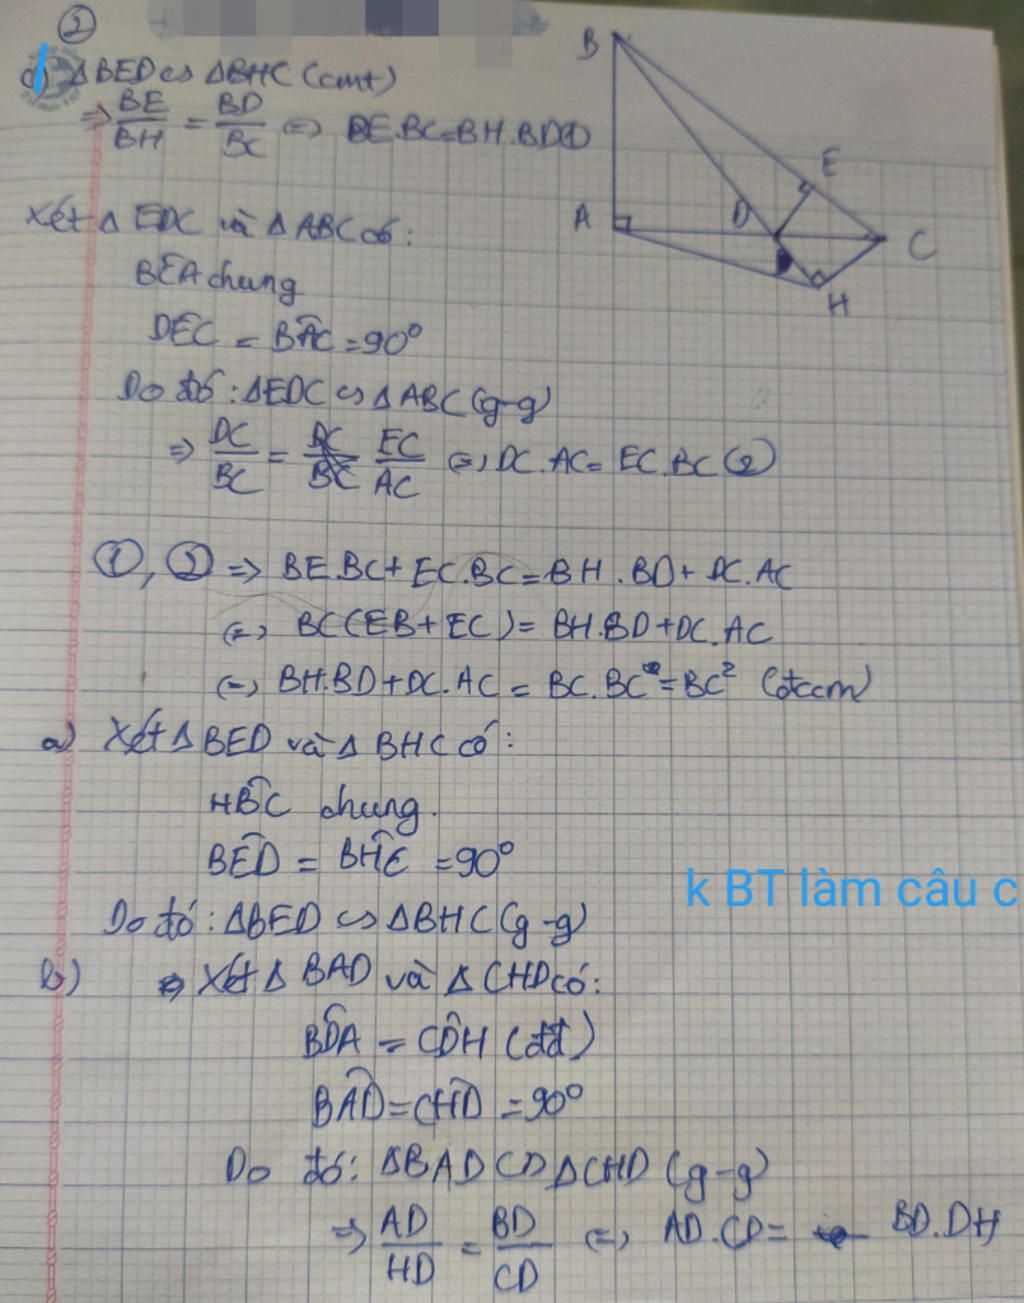 ②
d) ΔBED ∽ ΔBHC (cmt)
⇒ BE/BH = BD/BC ⇔ BE.BC=BH.BD ①
Xét Δ EDC và Δ ABC có:
BEA chung
DEC = BAC = 90°
Do đó: ΔEDC ∽ Δ ABC (g-g)
⇒ DC/BC = EC/AC ⇔ DC.AC= EC.BC (2)
①, ② ⇒ BE.BC+EC.BC=BH.BD+DC.AC
⇔ BC(EB+EC)= BH.BD+DC.AC
⇔ BH.BD+DC.AC = BC.BC=BC² (đtcm)
a) Xét Δ BED và Δ BHC có:
HBC chung.
BED = BHC = 90°
k BT làm câu c
Do đó: ΔBED ∽ ΔBHC (g-g)
b) Xét Δ BAD và Δ CHD có:
BDA = CDH (đđ)
BAD = CHD = 90°
Do đó: ΔBAD ∽ ΔCHD (g-g)
⇒ AD/HD = BD/CD ⇔ AD.CD= BD.DH
B
E
A
D
C
H